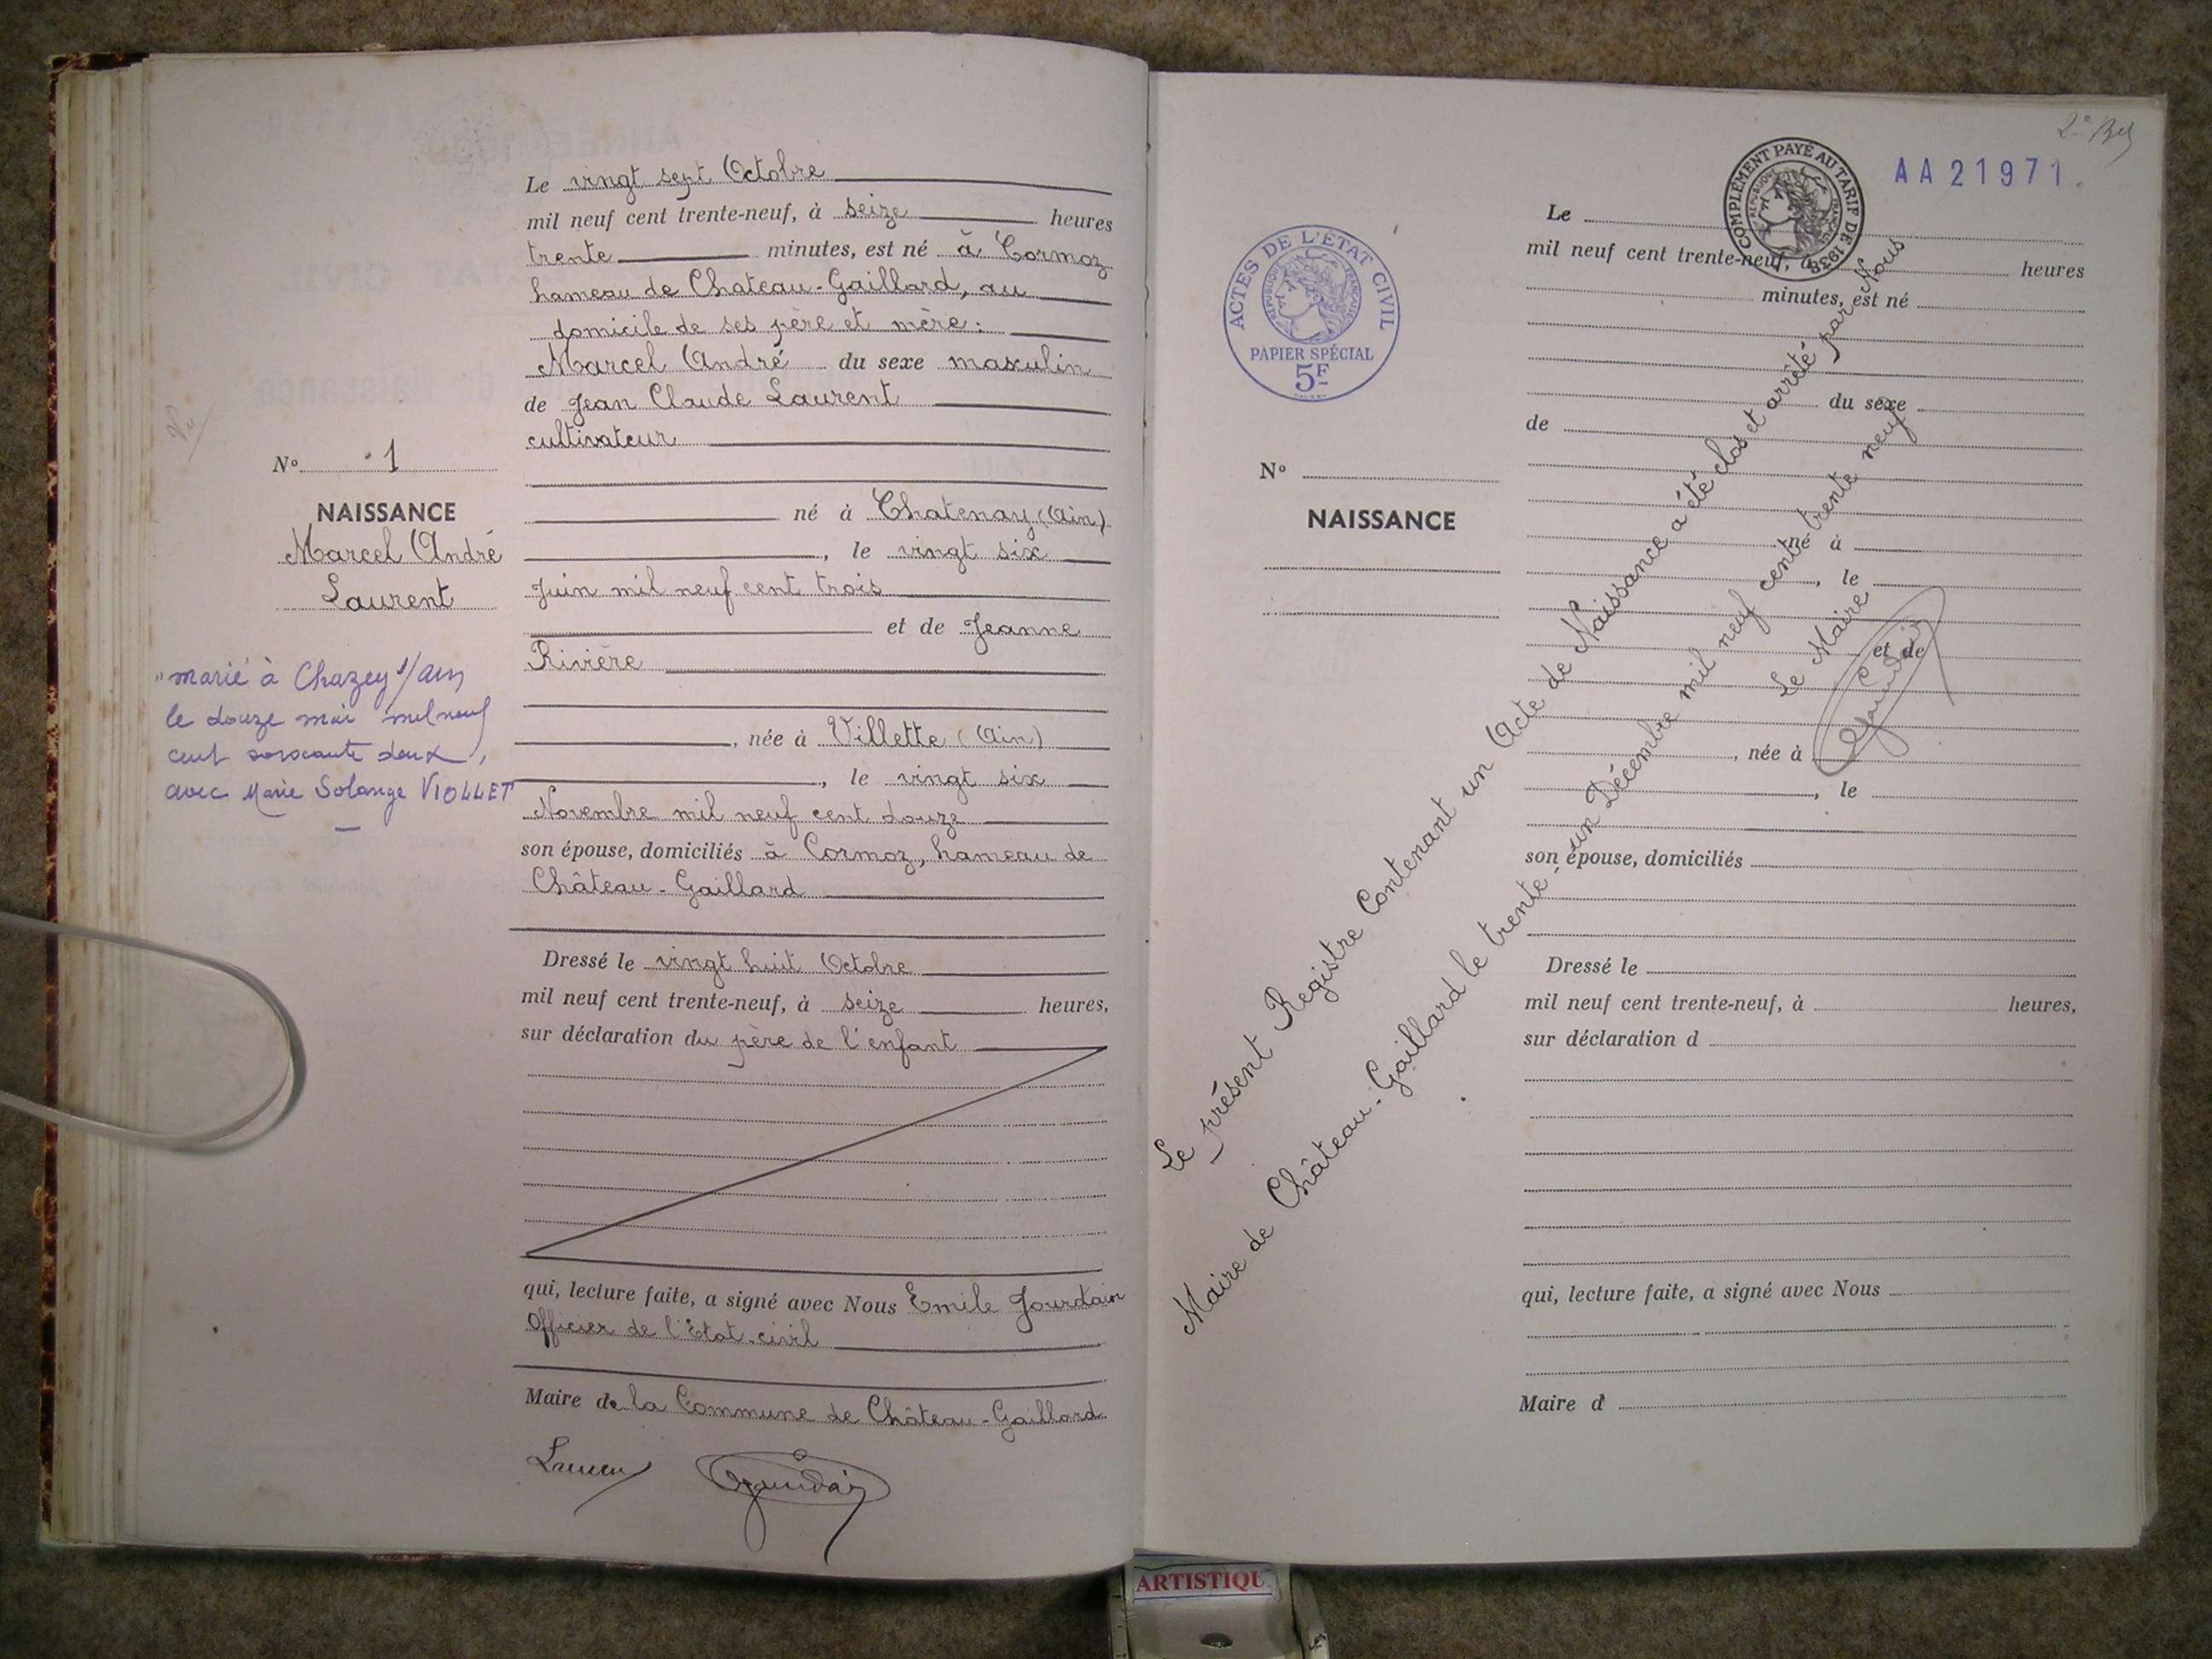 Le vingt sept Octobre
mil neuf cent trente-neuf, à seize heures
trente minutes, est né à Cormoz
hameau de Chateau-Gaillard, au
domicile de ses père et mère:
Marcel André du sexe masculin
de Jean Claude Laurent
cultivateur
né à Chatenay (Ain)
, le vingt six
Juin mil neuf cent trois
et de Jeanne
Rivière
, née à Villette (Ain)
, le vingt six
Novembre mil neuf cent douze
son épouse, domiciliés à Cormoz, hameau de
Château-Gaillard
Dressé le vingt huit Octobre
mil neuf cent trente-neuf, à seize heures,
sur déclaration du père de l'enfant
qui, lecture faite, a signé avec Nous Emile Jourdain
Officier de l'Etat-civil
Maire de la Commune de Château-Gaillard
Vu
N° 1
NAISSANCE
Marcel André
Laurent
marié à Chazey s/ain
le douze mai mil neuf
cent soixante deux,
avec Marie Solange VIOLLET
AA21971.
COMPLÉMENT PAYÉ AU TARIF DE 1938
ACTES DE L'ÉTAT CIVIL
RÉPUBLIQUE FRANÇAISE
PAPIER SPÉCIAL
5F
Le
mil neuf cent trente-neuf, à heures
minutes, est né
du sexe
de
N°
NAISSANCE
né à
, le
et de
, née à
, le
son épouse, domiciliés
Dressé le
mil neuf cent trente-neuf, à heures,
sur déclaration d
qui, lecture faite, a signé avec Nous
Maire d
Le présent Registre Contenant un Acte de Naissance a été clos et arrêté par Nous
Maire de Château-Gaillard le trente-un Décembre mil neuf cent trente neuf
Le Maire
ARTISTIQU